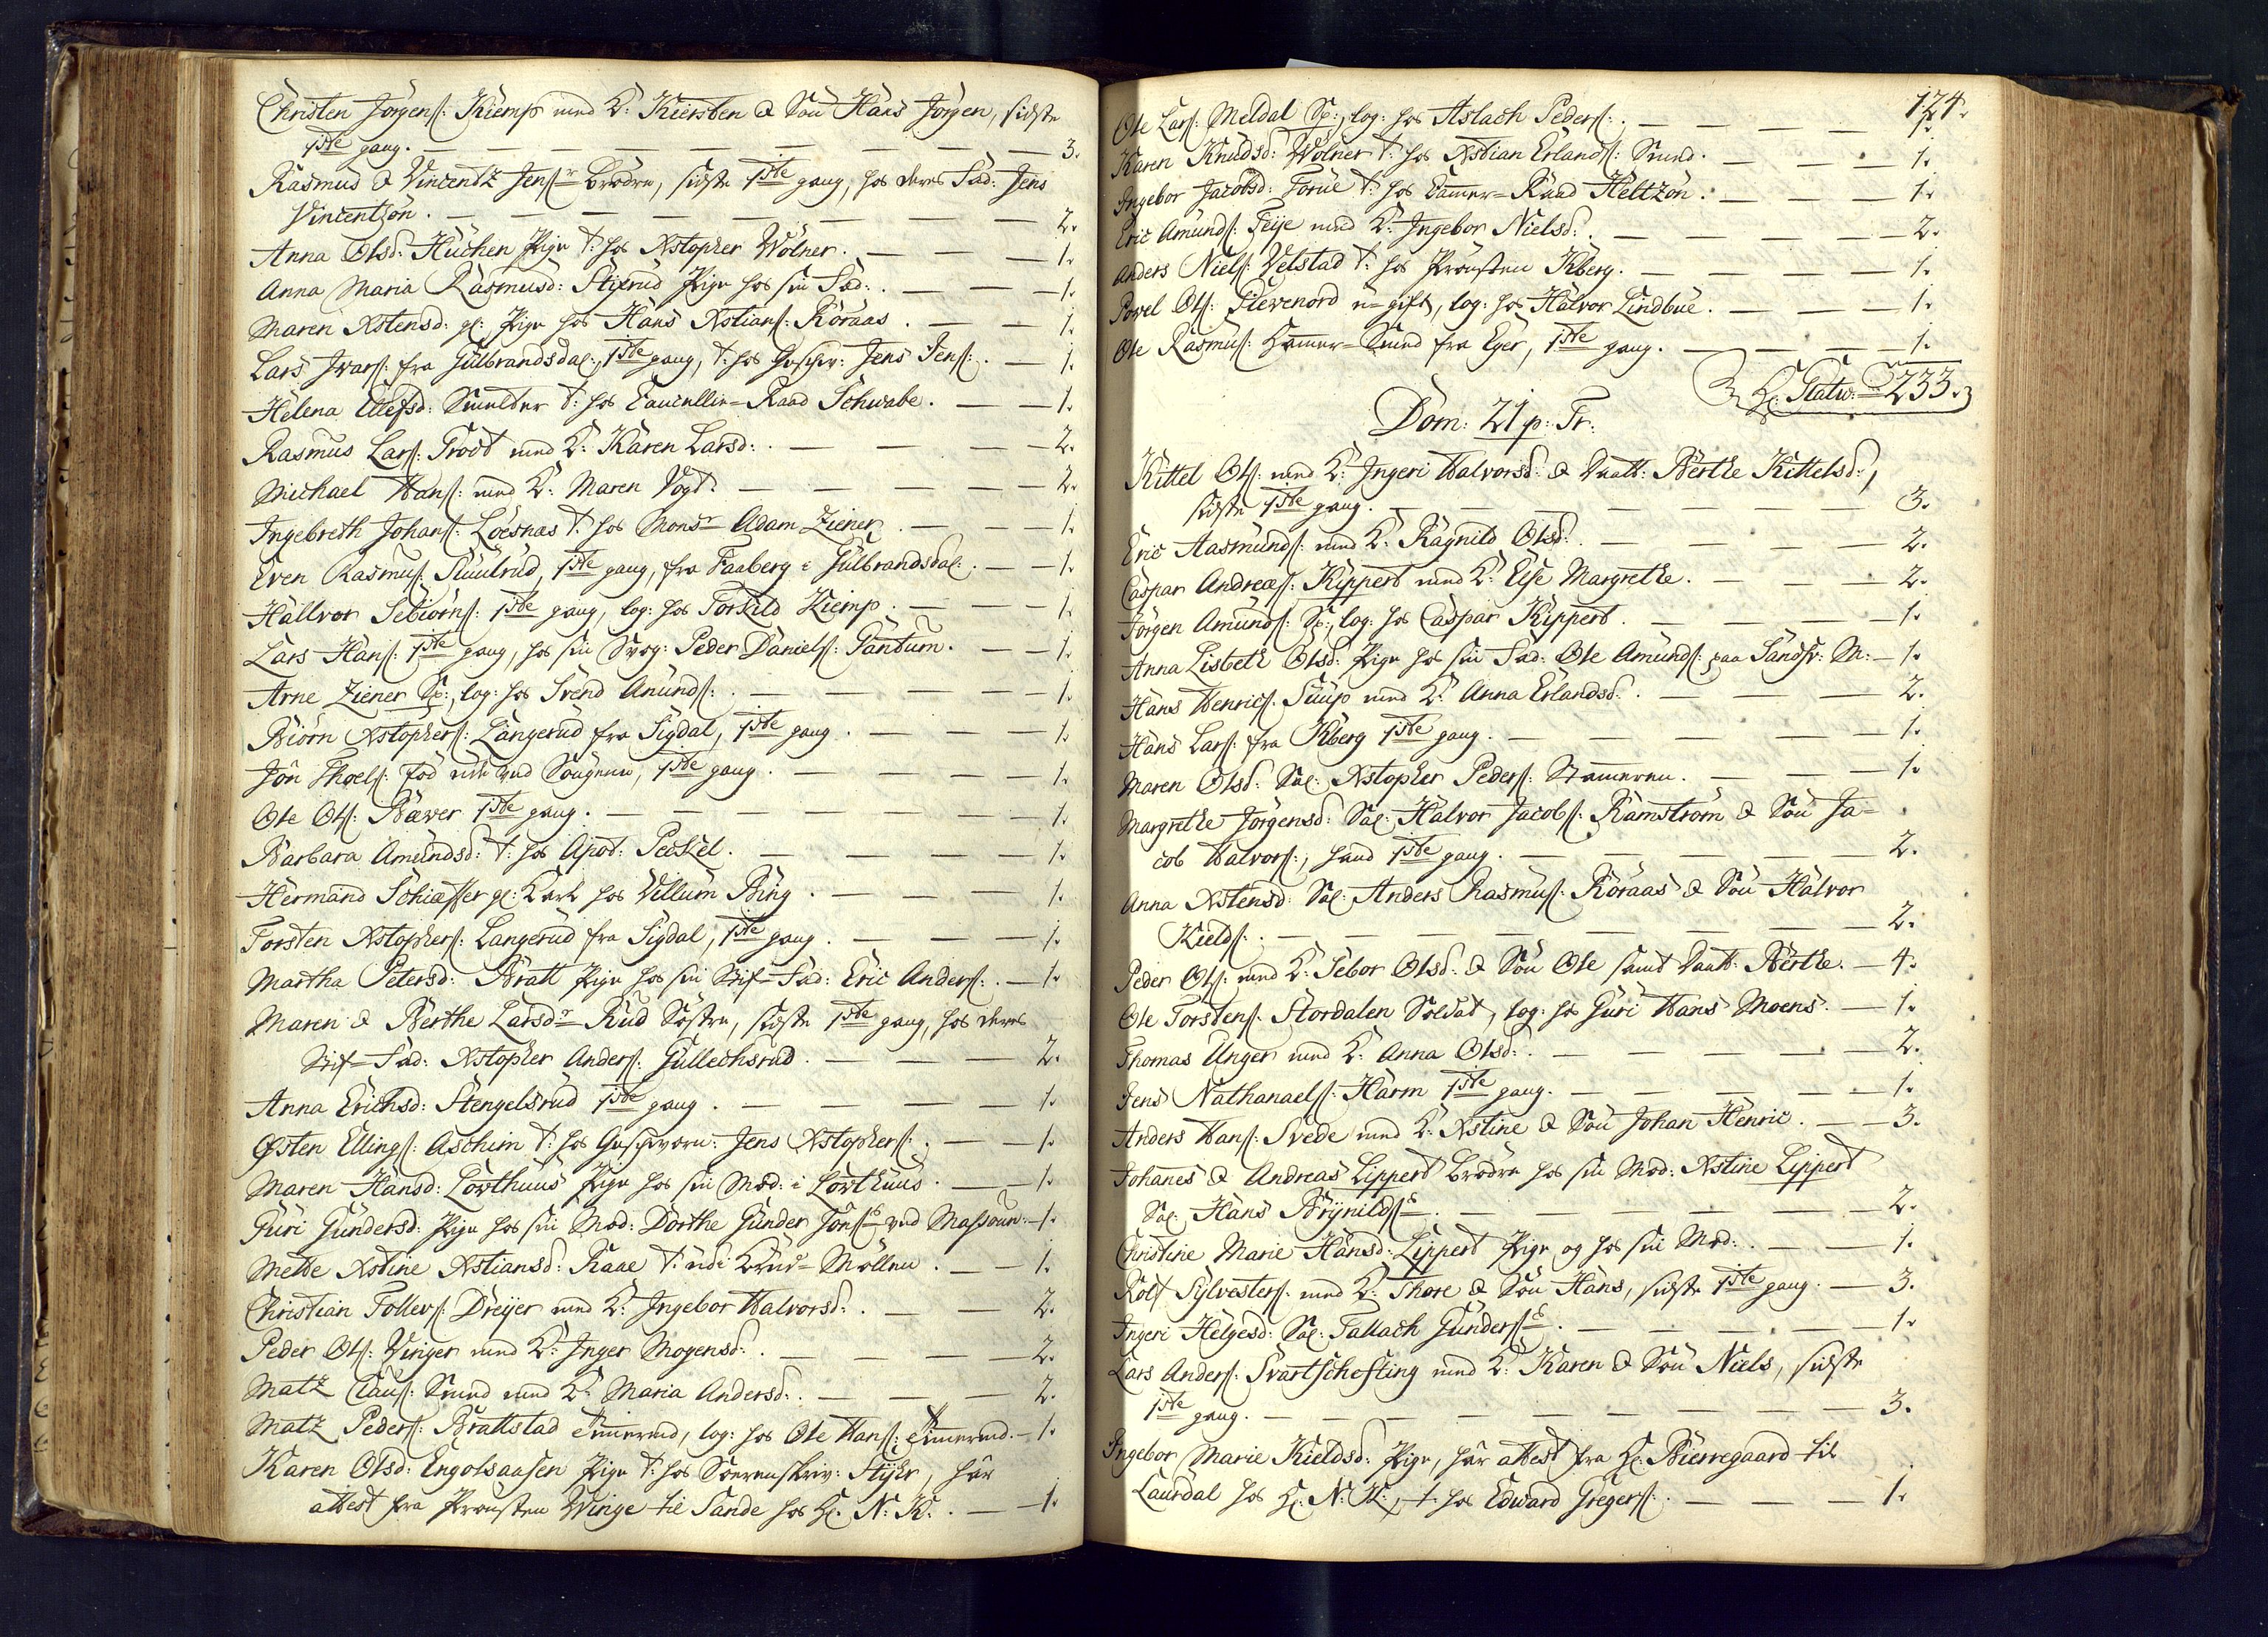 Christen Jörgens: Kiemp med K: Kiersten & Sön Hans Jörgen, sidste
1ste gang. — 3.
Rasmus & Vincentz Jensr Brödre, sidste 1ste gang, hos deres Fad: Jens
Vincentzön. — 2.
Anna Olsd: Huchen Pige t: hos Xstopher Wölner. — 1.
Anna Maria Rasmusd: Stixrud Pige hos sin Fad: — 1.
Maren Xstensd: gl: Pige hos Hans Xstians: Röraas. — 1.
Lars Ivars: fra Gulbrandsdal:, 1ste gang, t: hos Geschw: Jens Jens: — 1.
Helena Olefsd: Smelter t: hos Cancellie-Raad Schwabe. — 1.
Rasmus Lars: Trööt med K: Karen Larsd: — 2.
Michael Hans: med K: Maren Vogt. — 2.
Ingebreth Johans: Loesnas t: hos Monsr Adam Ziener. — 1.
Even Rasmus: Skuulrud, 1ste gang, fra Faaberg i Gulbrandsdal: — 1.
Hallvor Sebiörns: 1ste gang, log: hos Torkild Kiemp. — 1.
Lars Hans: 1ste gang, hos sin Svog: Peder Daniels: Pantum. — 1.
Arne Ziener Sp:, log: hos Svend Amunds: — 1.
Biörn Xstophers: Langerud fra Sigdal, 1ste gang. — 1.
Jon Thoels: föd ude ved Sougene, 1ste gang. — 1.
Ole Ols: Bæver 1ste gang. — 1.
Barbara Amundsd: t: hos Apot: Peckel. — 1.
Hermand Schiæffer gl: Karl hos Villum Bing. — 1.
Torsten Xstophers: Langerud fra Sigdal, 1ste gang. — 1.
Martha Petersd: Bratt Pige hos sin Stif-Fad: Eric Anders: — 1.
Maren & Berthe Larsdr Rud Söstre, sidste 1ste gang, hos deres
Stif-Fad: Xstopher Anders: Gullechsrud. — 2.
Anna Erichsd: Stengelsrud 1ste gang. — 1.
Østen Ellings: Aschim t: hos Geschworn: Jens Xstophers: — 1.
Maren Hansd: Lörthuus Pige hos sin Mod: i Lörthuus. — 1.
Guri Gundersd: Pige hos sin Mod: Dorthe Gunder Jönss ved Massoun: — 1.
Mette Xstine Xstiansd: Raae t: udi Brud-Möllen. — 1.
Christian Tollevs: Dreyer med K: Ingebor Halvorsd: — 2.
Peder Ols: Vinger med K: Inger Mogensd: — 2.
Matz Claus: Smed med K: Maria Andersd: — 2.
Matz Peders: Brattstad Tömmermd, log: hos Ole Hans: Tömmermd. — 1.
Karen Olsd: Engolsaasen Pige t: hos Sorenskriv: Styhr, har
attest fra Pronsten Winge til Sande hos Hr: N: K: — 1.
124.
Ole Lars: Meldal Sp:, log: hos Aslach Peders: — 1.
Karen Knudsd: Wölner t: hos Xstian Erlands: Smed. — 1.
Ingebor Jacobsd: Torue t: hos Cammer-Raad Heltzön. — 1.
Eric Amunds: Teije med K: Ingebor Nielsd: — 2.
Anders Niels: Velstad t: hos Prönsten Kberg. — 1.
Povel Ols: Flevenord u-gift, log: hos Halvor Lindbue. — 1.
Ole Rasmus: Hamer-Smed fra Eger, 1ste gang. — 1.
Hr: Statw: 233.
Dom: 21 p: Tr:
Kittel Ols: med K: Ingeri Halvorsd: & Daatt: Berthe Kittelsd:,
sidste 1ste gang. — 3.
Eric Aasmunds: med K: Ragnild Olsd: — 2.
Caspar Andreæs: Kippert med K: Else Margrethe. — 2.
Jörgen Amunds: Sp:, log: hos Caspar Kippert. — 1.
Anna Lisbeth Olsd: Pige hos sin Fad: Ole Amunds: paa Sandsv: M: — 1.
Hans Henrics: Suup med K: Anna Erlandsd: — 2.
Hans Lars: fra Kberg 1ste gang. — 1.
Maren Olsd: Sal: Xstopher Peders: — 1.
Margrethe Jörgensd: Sal: Halvor Jacobs: Ramström & Sön Ja-
cob Halvors:, hand 1ste gang. — 2.
Anna Xstensd: Sal: Anders Rasmus: Röraas & Sön Halvor
Kields: — 2.
Peder Ols: med K: Sebor Olsd: & Sön Ole samt Daatt: Berthe. — 4.
Ole Torstens: Stordalen Soldat, log: hos Guri Hans Moens. — 1.
Thomas Unger med K: Anna Olsd: — 2.
Jens Nathanaels: Harm 1ste gang. — 1.
Anders Hans: Svede med K: Xstine & Sön Johan Henric. — 3.
Johanes & Andreas Lippert Brödre hos sin Mod: Xstine Lippert
Sal: Hans Brynildss. — 2.
Christine Marie Hansd: Lippert Pige og hos sin Mod: — 1.
Rolf Sylvesters: med K: Thore & Sön Hans, sidste 1ste gang. — 3.
Ingeri Helgesd: Sal: Tallach Gunderss. — 1.
Lars Anders: Svartschefting med K: Karen & Sön Niels, sidste
1ste gang. — 3.
Ingebor Marie Kieldsd: Pige, har attest fra Hr: Bierregaard til
Laurdal hos Hr: N: K:, t: hos Edward Gregers: — 1.